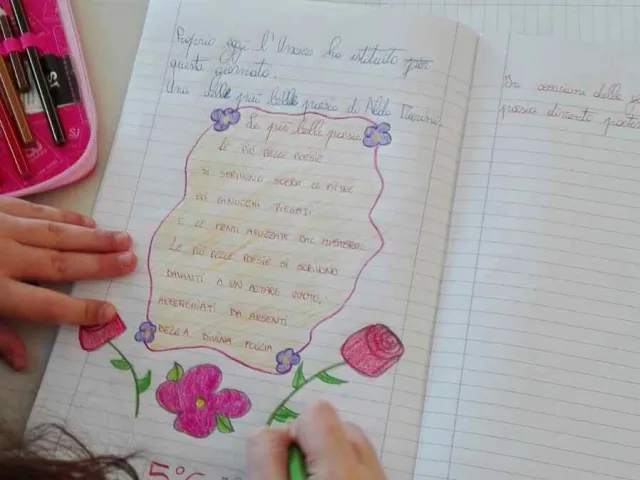 Proprio oggi l'Unesco ha istituito per
questa giornata.
Una delle più belle poesie di Alda Merini:
Le più belle poesie
LE PIÙ BELLE POESIE
SI SCRIVONO SOPRA LE PIETRE
COI GINOCCHI PIEGATI
E LE MENTI AGUZZATE DAL MISTERO.
LE PIÙ BELLE POESIE SI SCRIVONO
DAVANTI A UN ALTARE VUOTO,
ACCERCHIATI DA AGENTI
DELLA DIVINA FOLLIA
5°C
In occasione della
poesia diventa